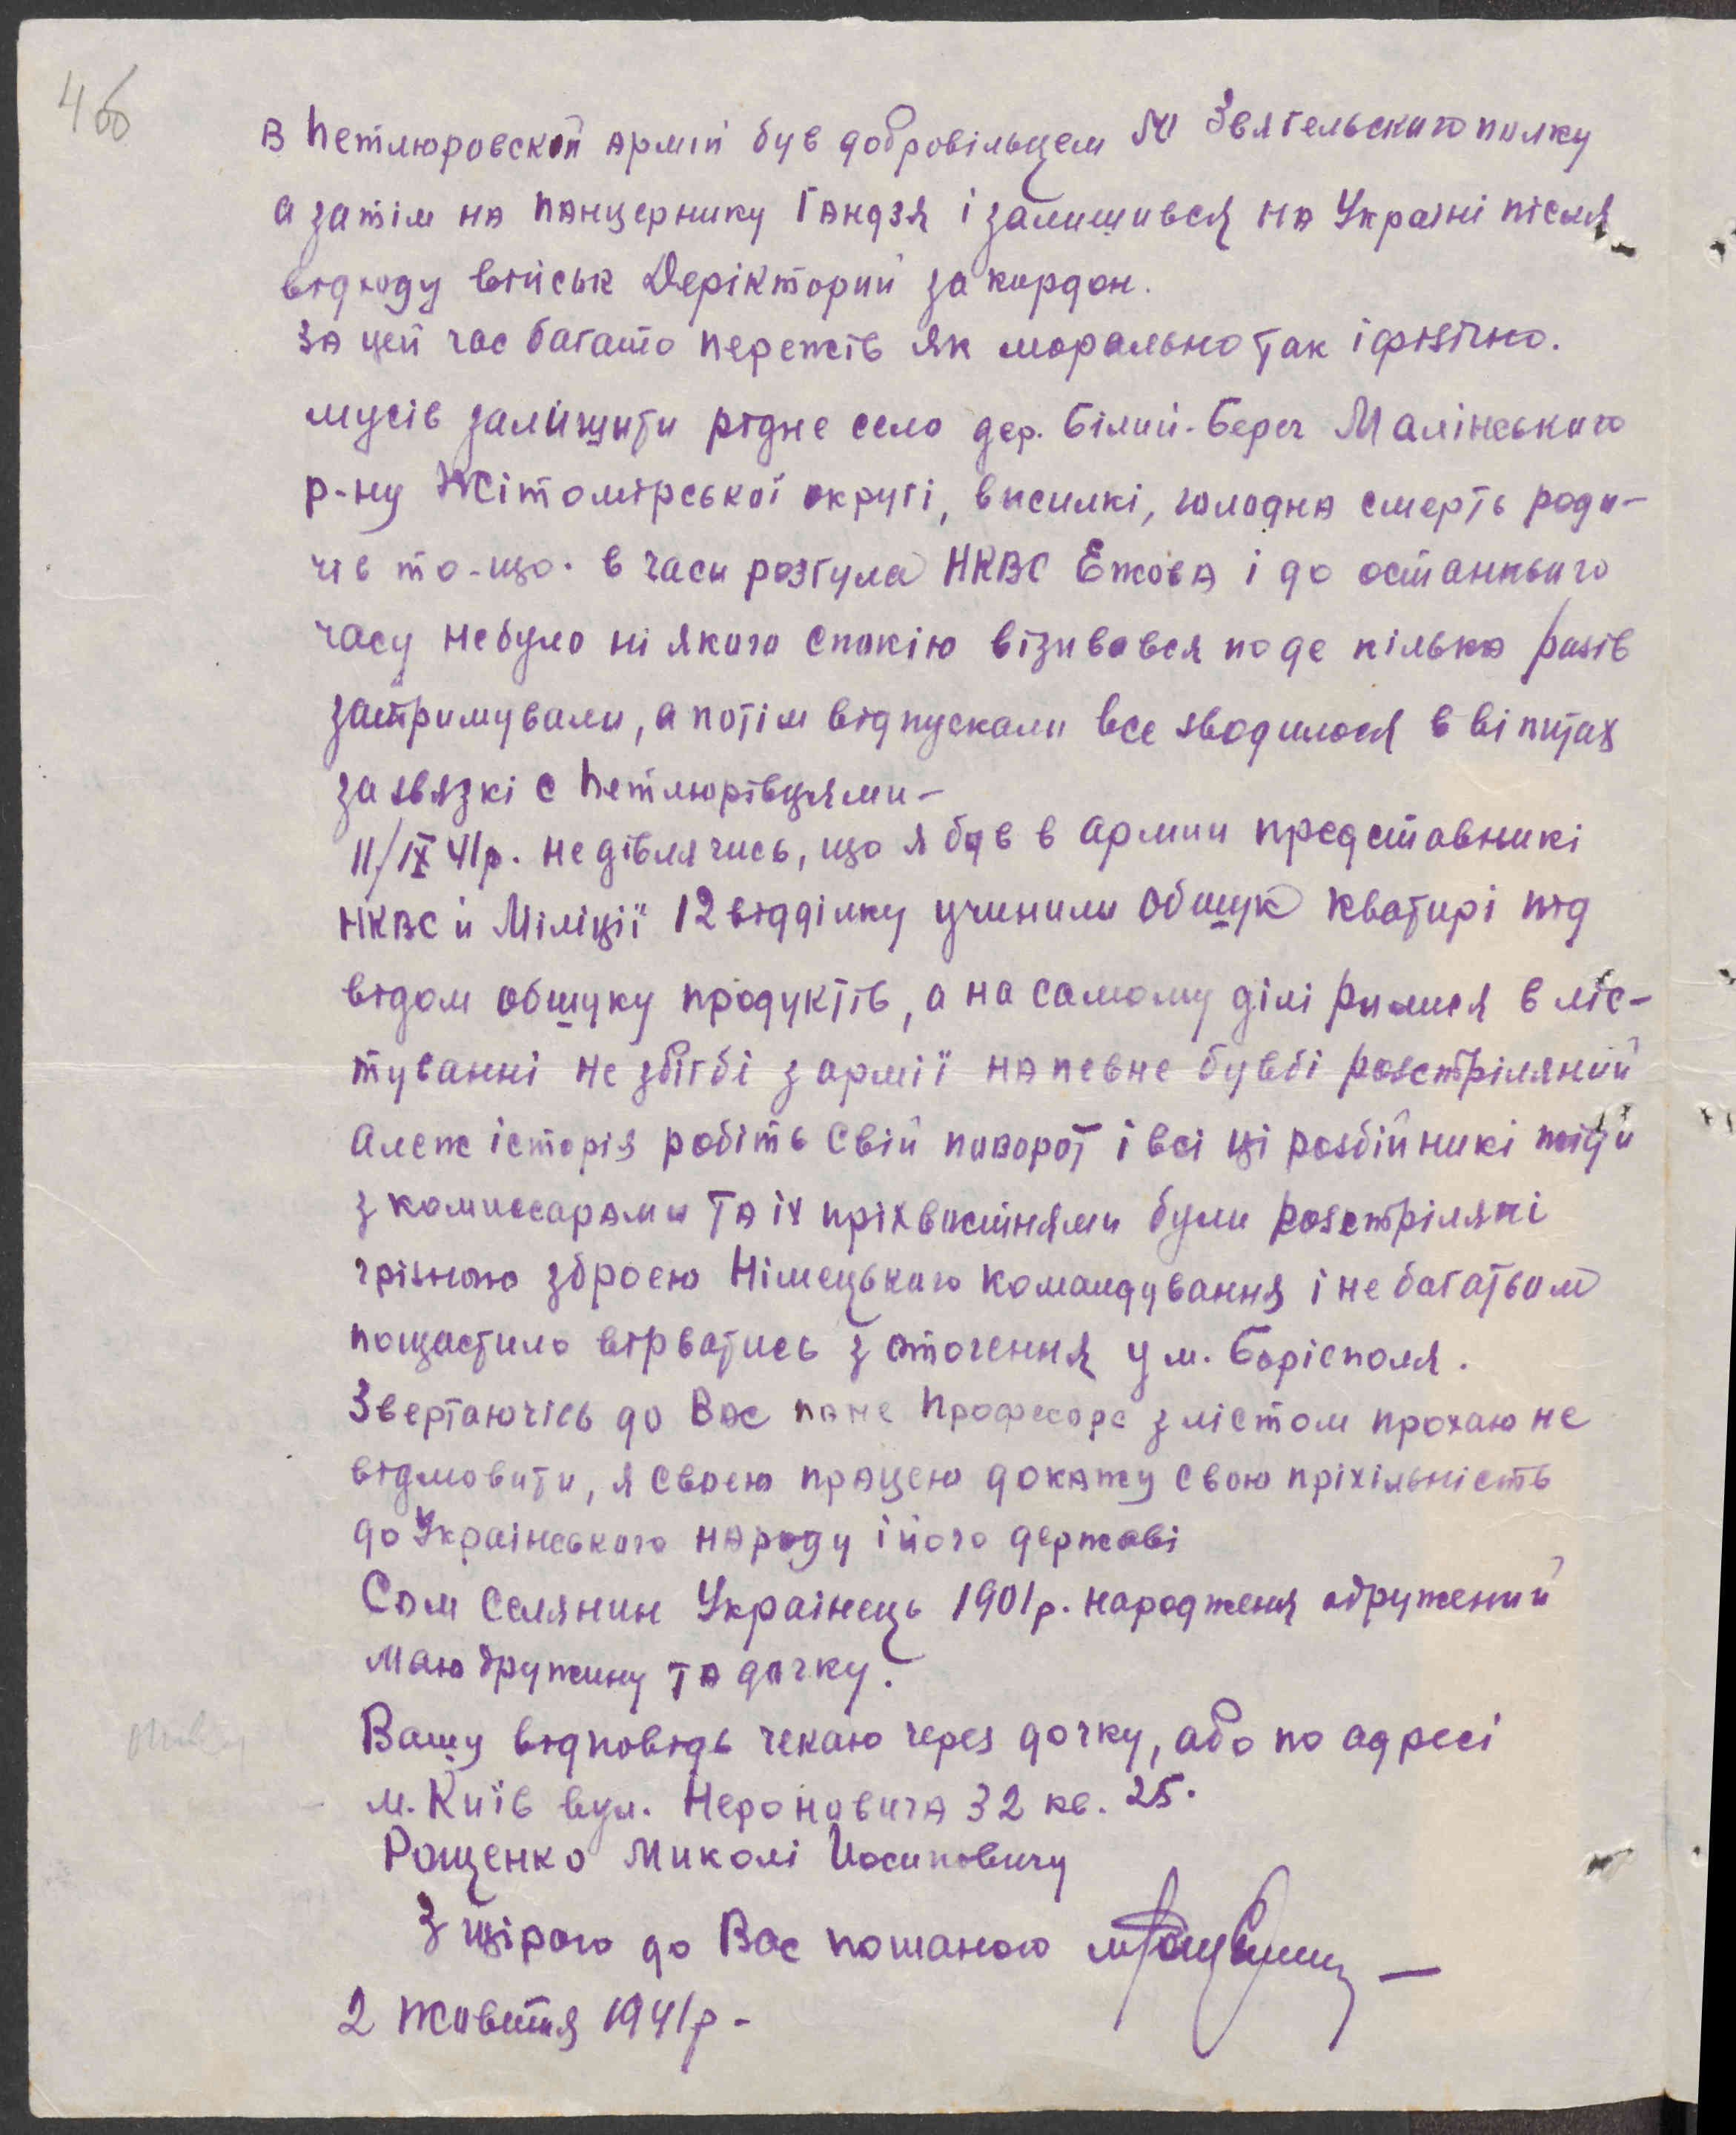 4об
в Петлюровской армії був добровільцем 50 Звягельского полку
а затім на панцернику Гандзя і залишився на Україні після
відходу військ Деріkторий за кордон.
За цей час багато пережів як морально так і фізічно.
мусів заліщити рідне село дер. Білий-Берег Малінського
р-ну Жітомірської округі, висилкі, голодна смерть роди-
чів то-що. в часи розгула НКВС Ежова і до останнього
часу небуло ні якого спокію візивався по де кілька разів
затримували, а потім відпускали все зводилося в віпитах
за звязкі с Петлюрівцями-
11/IX 41р. недівлячись, що я був в армии представникі
НКВС й Міліції 12 відділку учинили обшук кватирі під
відом обшуку продуктів, а на самому ділі рилися в ліс-
туванні не збігбі з армії напевне бувбі розстріляний
алеж історія робіть свій поворот і всі ці розбійникі жіди
з комиссарами та іх пріхвостнями були розстріляні
грізною зброєю Німецького командування і не багатьом
пощастило вірватись з оточення у м. Борісполя.
Звертаючісь до Вас пане Професоре з лістом прохаю не
відмовити, я своею працею докажу свою пріхільність
до Українського народу і його державі
Сам селянин Украінець 1901р. народженя одружений
маю дружину та дочку.
Вашу відповідь чекаю через дочку, або по адресі
м. Київ вул. Нероновича 32 кв. 25.
Рощенко Миколі Йосиповичу
З щірою до Вас пошаною
2 жовтня 1941р-